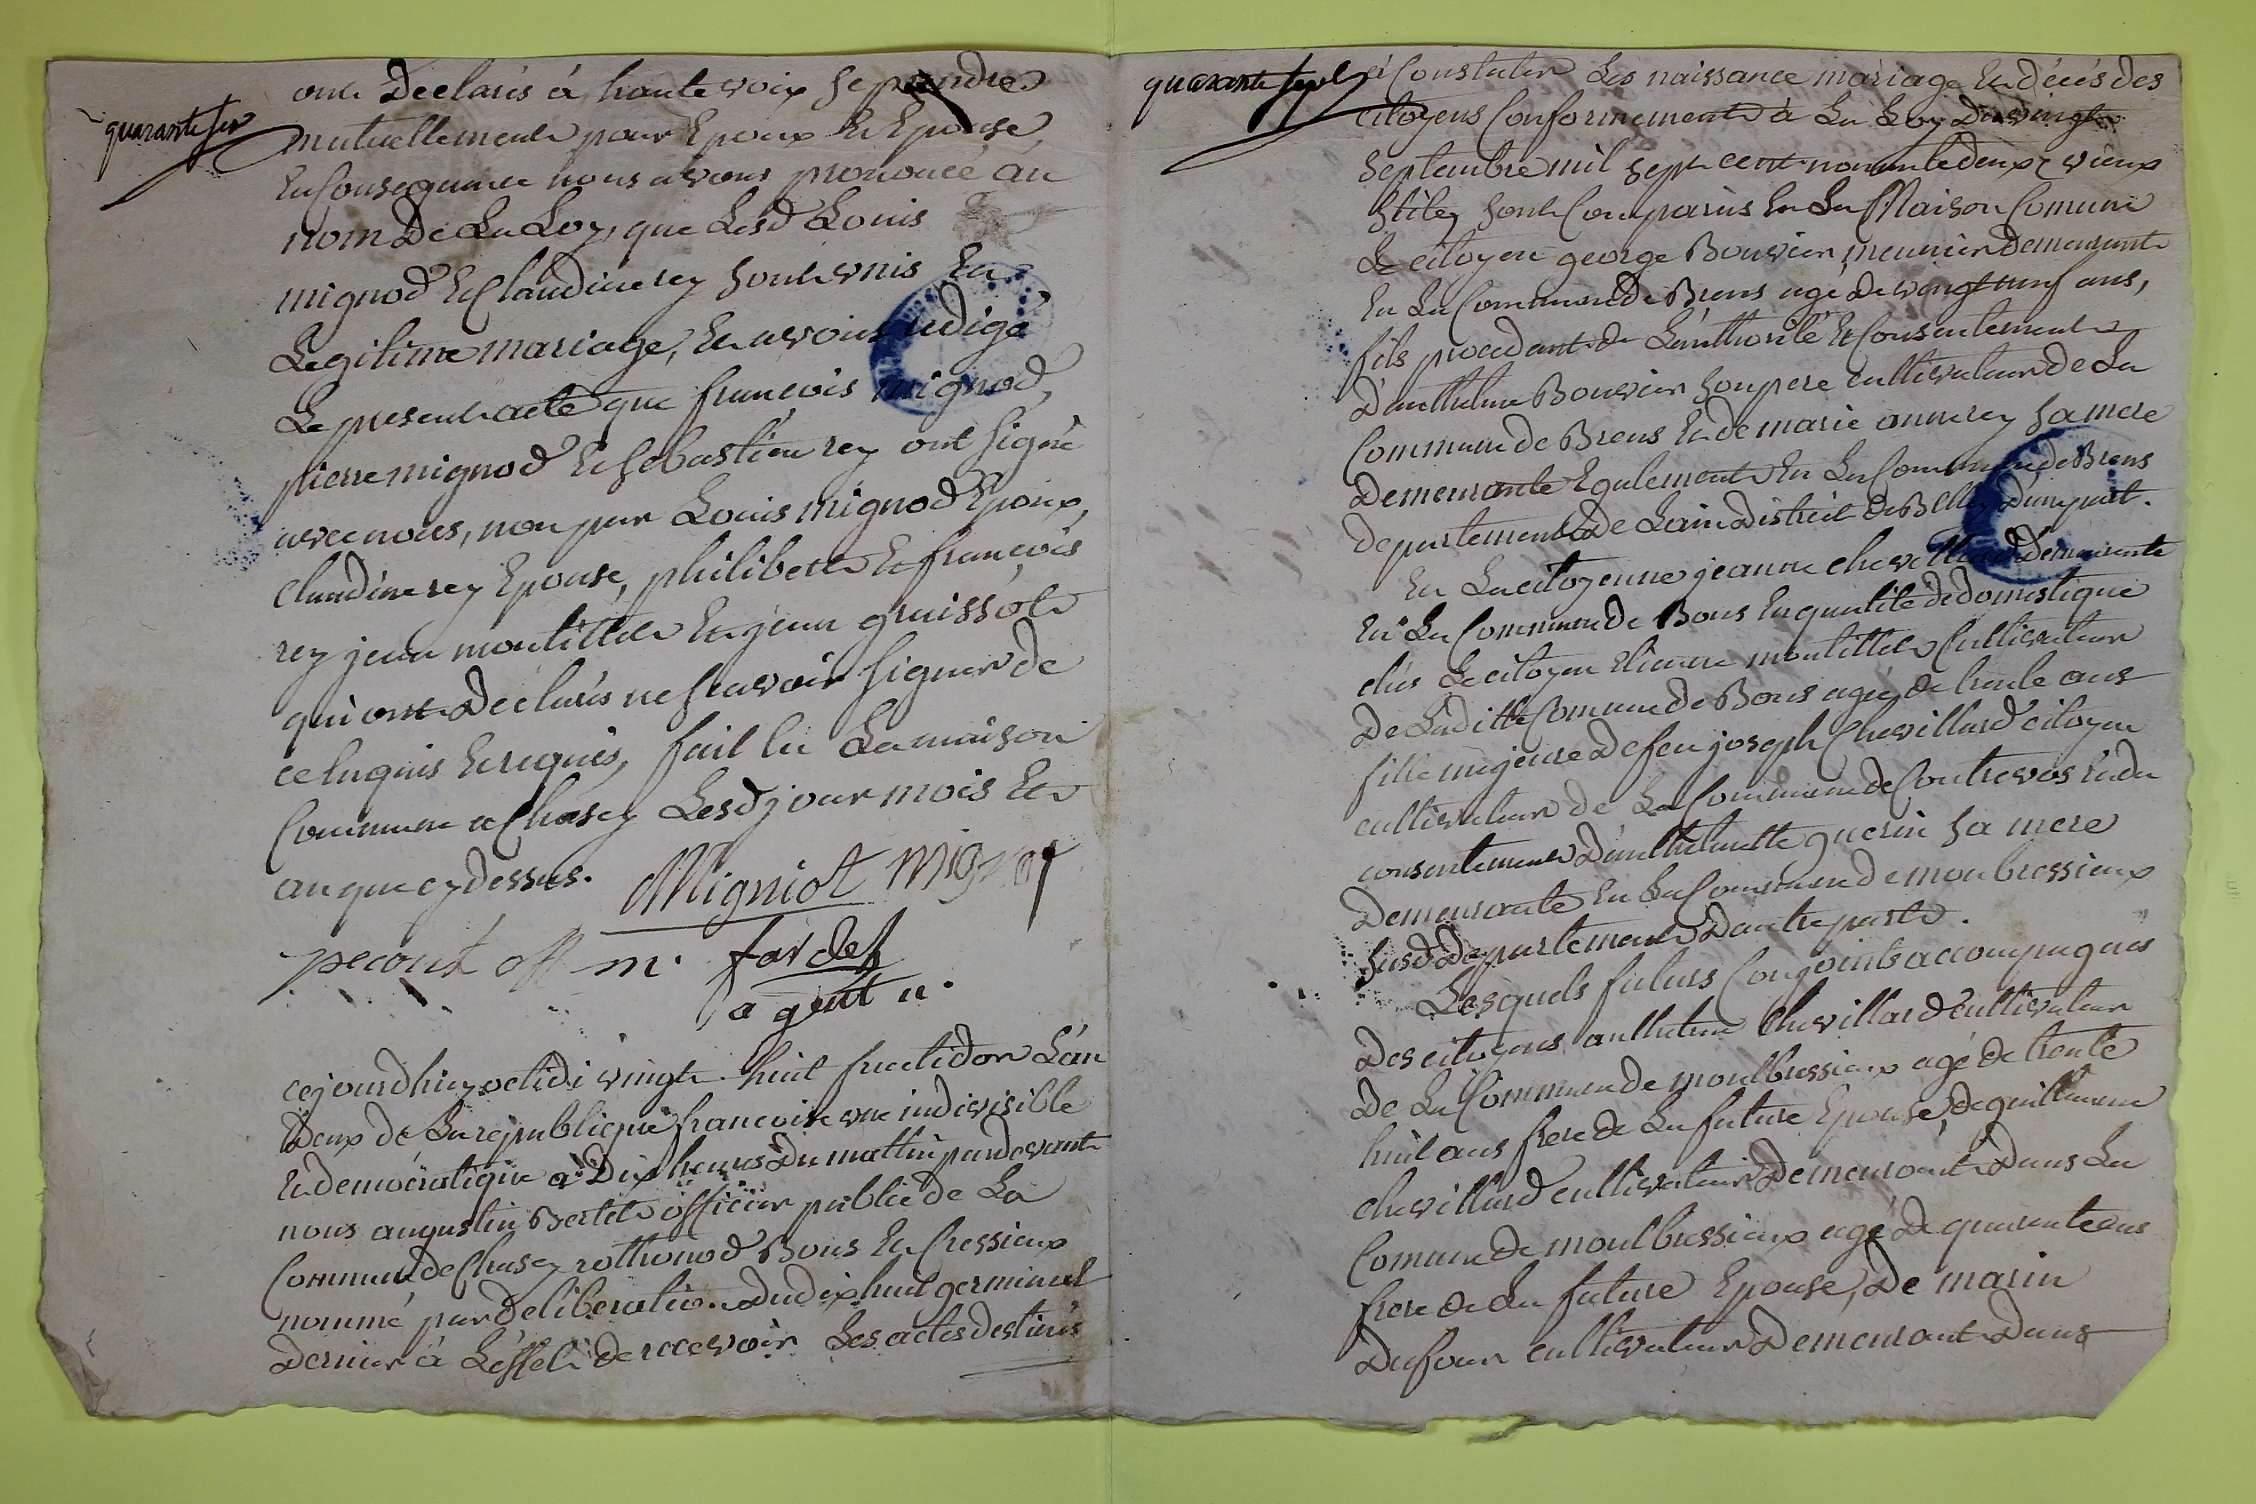 quarante six
ont Declarés á haute voix se prendre
mutuellement pour Epoux Et Epouse,
En Consequence nous avons prononcé au
nom De La Loy, que Lesd Louis
mignod Et Claudine rey sont unis En
Legitime mariage, Et avons redigé
Le present acte que françois mignod,
pierre mignod Et sebastien rey ont signé
avec nous, non par Louis mignod Epoux,
Claudine rey Epouse, philibert Et françois
rey jean montillet Et jean
qui ont Declarés ne scavoir signer de
ce Enquis Et requis, fait En La maison
Commune a Chasey Lesd jour mois Et
an que cy dessus. Migniot Mignot
pecout off m. fardel
agent n.
cejourdhuy octidi vingt huit fructidor L'an
Deux de La republique francoise une indivisible
Et democratique a Dix heures Du mattin pardevant
nous augustin Bertet officier public de La
Commune de Chasey rothonod Bons Et Cressieux
nommé par Deliberation Du dix huit germinal
Dernier á L'effet de recevoir Les actes destinés
quarante sept
á Constater Les naissance mariage Et décés des
citoyens Conformement á La Loy Du vingt
septembre mil sept cent nonante deux vieux
stile, sont Comparus En La Maison Comune
Le citoyen george Bouvier meunier demeurant
En La Commune de Brens agé De vingt neuf ans,
fils procedant de L'authorité Et Consentement
D'anthelme Bouvier son pere cultivateur de La
Commune de Brens Et de marie anne rey sa mere
Demeurante Egalement En La Commune de Brens
departement De Lain District de Belley D'une part.
Et La citoyenne jeanne chevillard Demeurante
En La Commune de Bons En qualité de domestique
chés Le citoyen Etienne montillet Cultivateur
De Ladite Commune de Bons agée de trente ans
fille majeure De feu joseph Chevillard citoyen
cultivateur de La Commune de Contrevos Et du
consentement D'anthelmette guerin sa mere
Demeurante En La Commune de monbressieux
susd Departement D'autre part.
Lesquels futurs Conjoints accompagnés
Des citoyens anthelme Chevillard Cultivateur
De La Commune de montbressieux agé de trente
huit ans frere de La future Epouse, de guillaume
chevillard cultivateur Demeurant Dans La
Comune de montbressieux agé De quarante ans
frere de La future Epouse, De marin
Dufour cultivateur Demeurant Dans